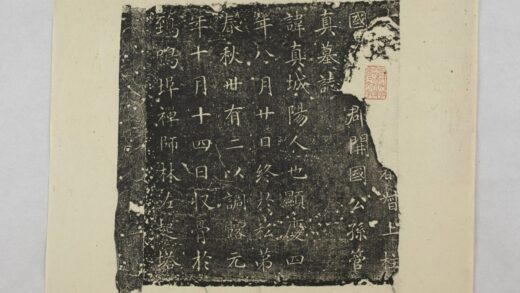 贈上柱
國郡開國公孫管
真墓誌
諱真城陽人也顯慶四
年八月廿日終於私第
春秋卅有二以調露元
年十月十四日收骨於
鵄鳴埠禪師林左起塔